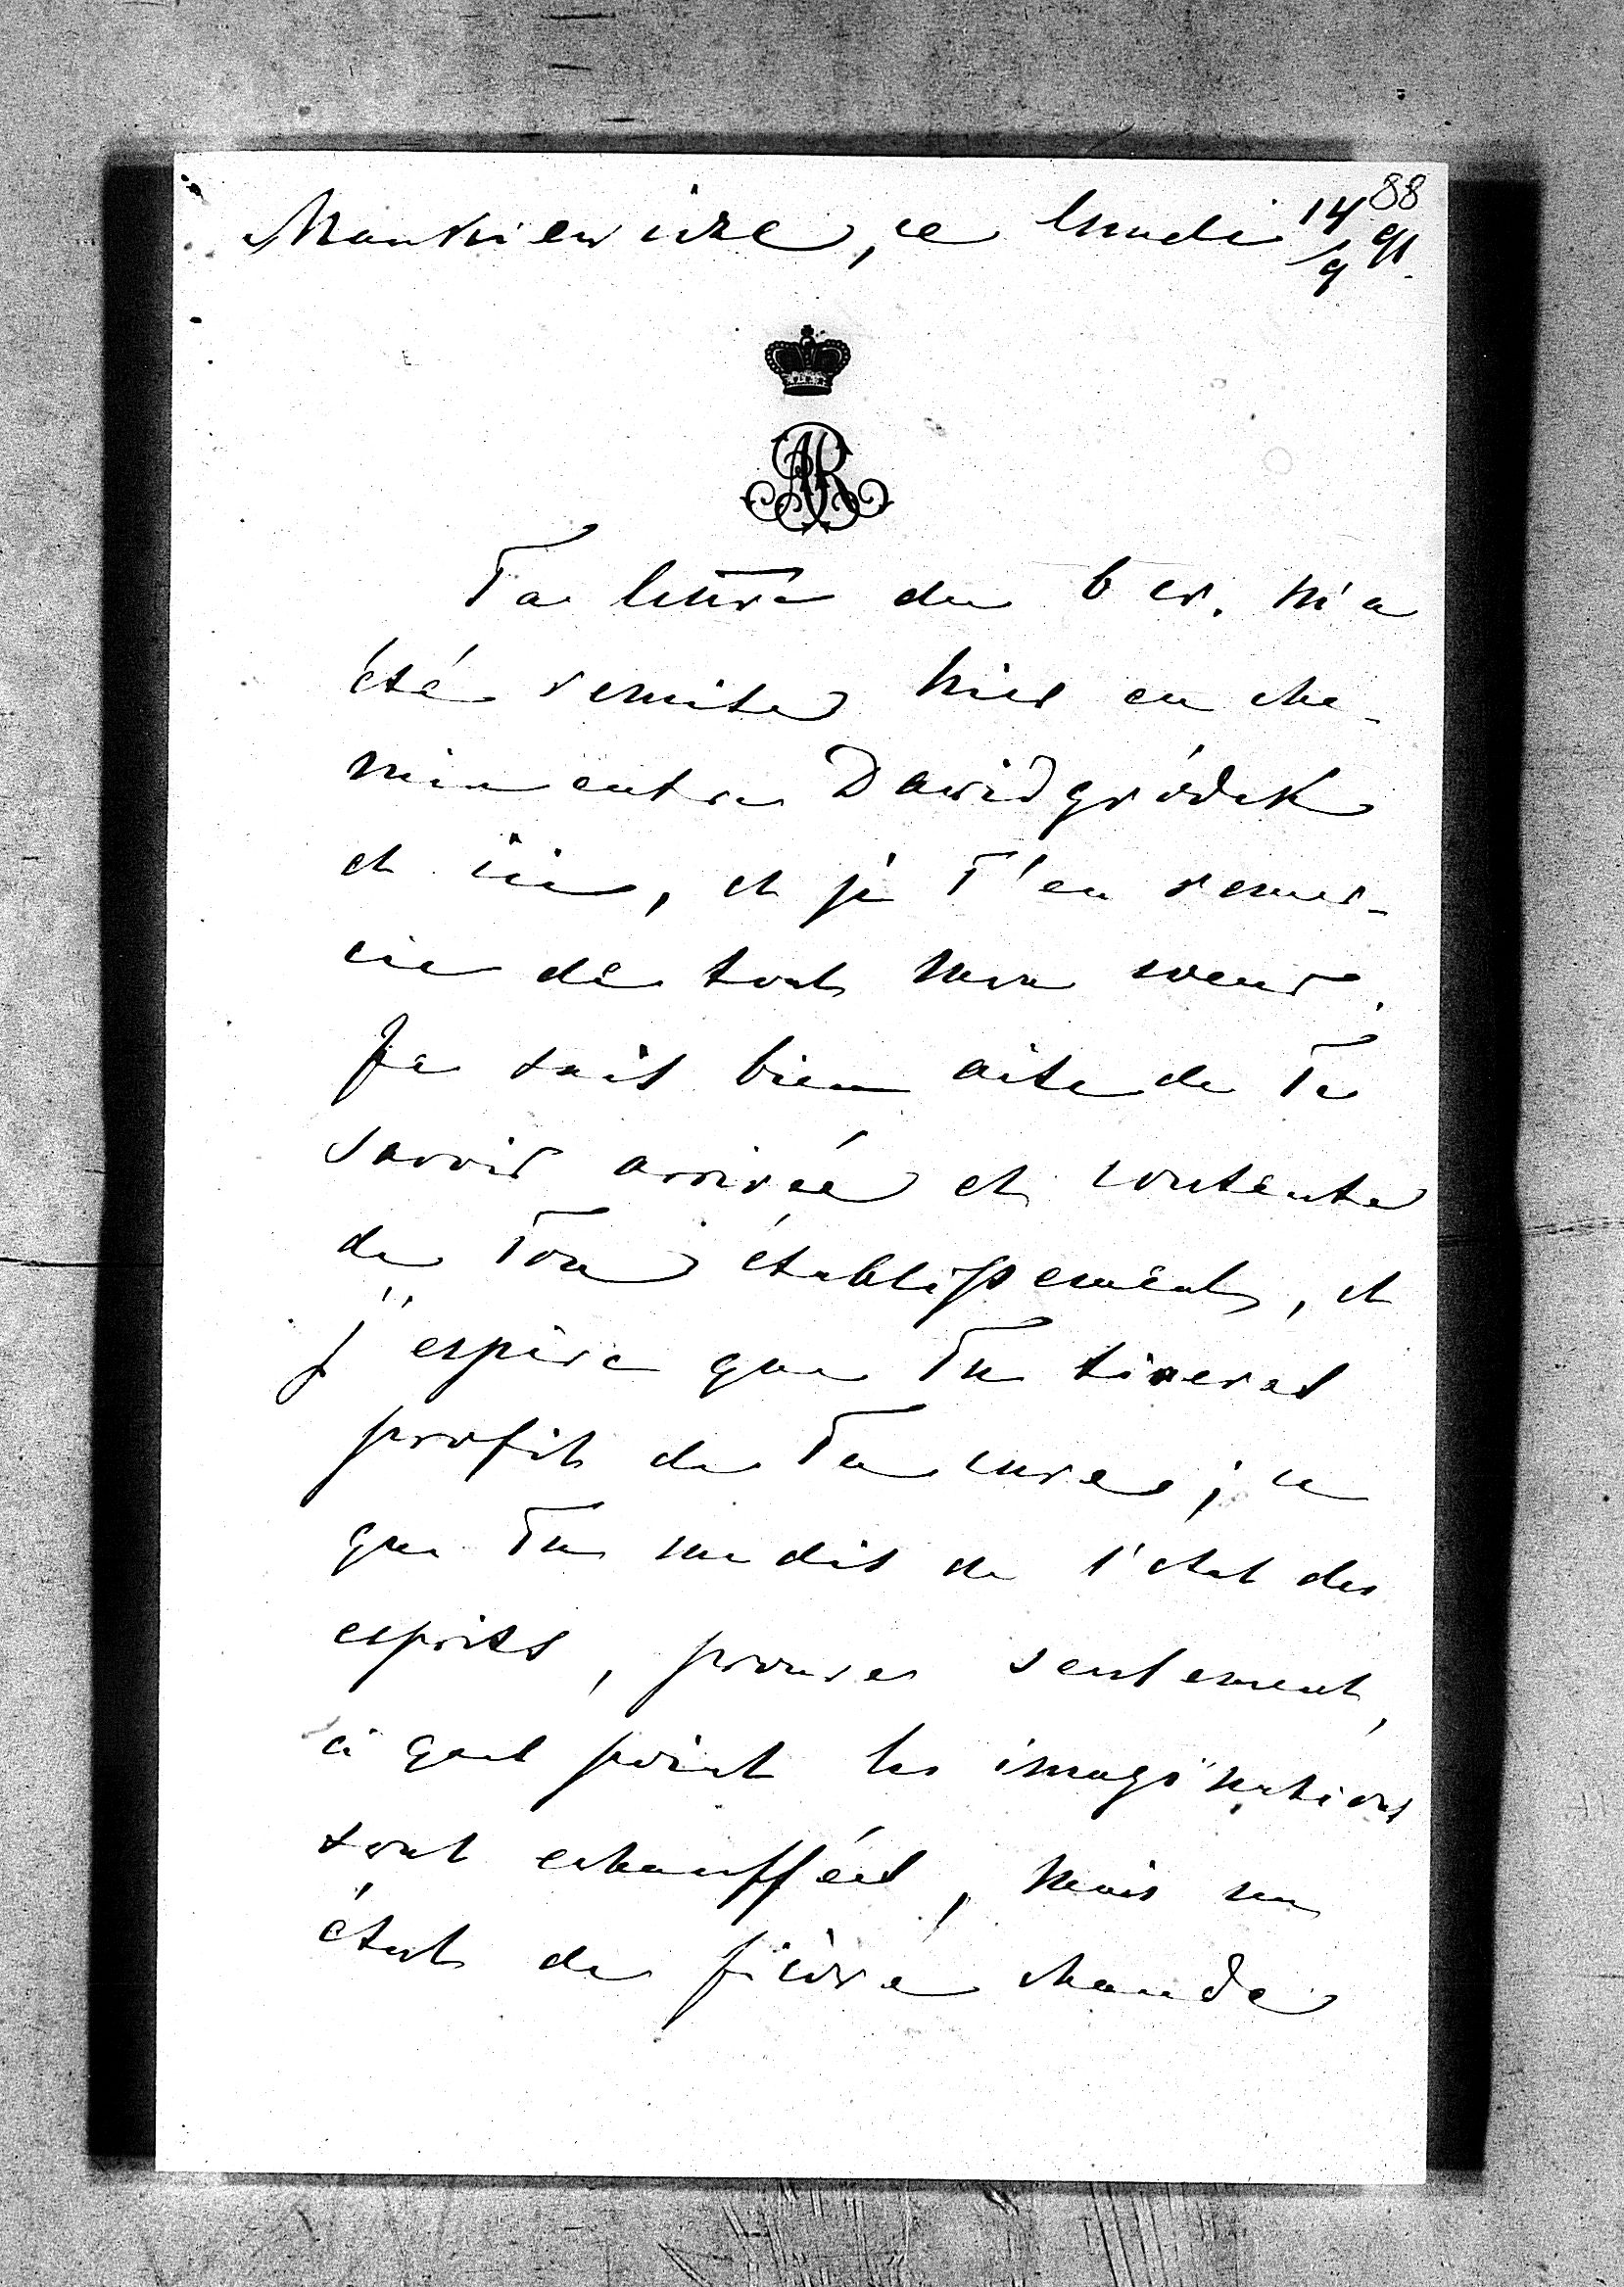 88
Mankiewicze, ce lundi 14/9 91.
AR
Ta lettre du 6 cr. m'a
été remise hier en che-
min entre Dawidgródek
et ici, et je T'en remer-
cie de tout mon coeur.
Je suis bien aise de Te
savoir arrivée et contente
de Ton établissement, et
j'espère que Tu tireras
profit de Ta cure; ce
que Tu me dis de l'état des
esprits, prouve seulement,
à quel point les imaginations
sont echauffées, mais un
état de fièvre chaude